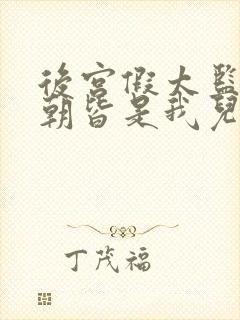 後宮假太監
朝皆是我兒
丁茂福